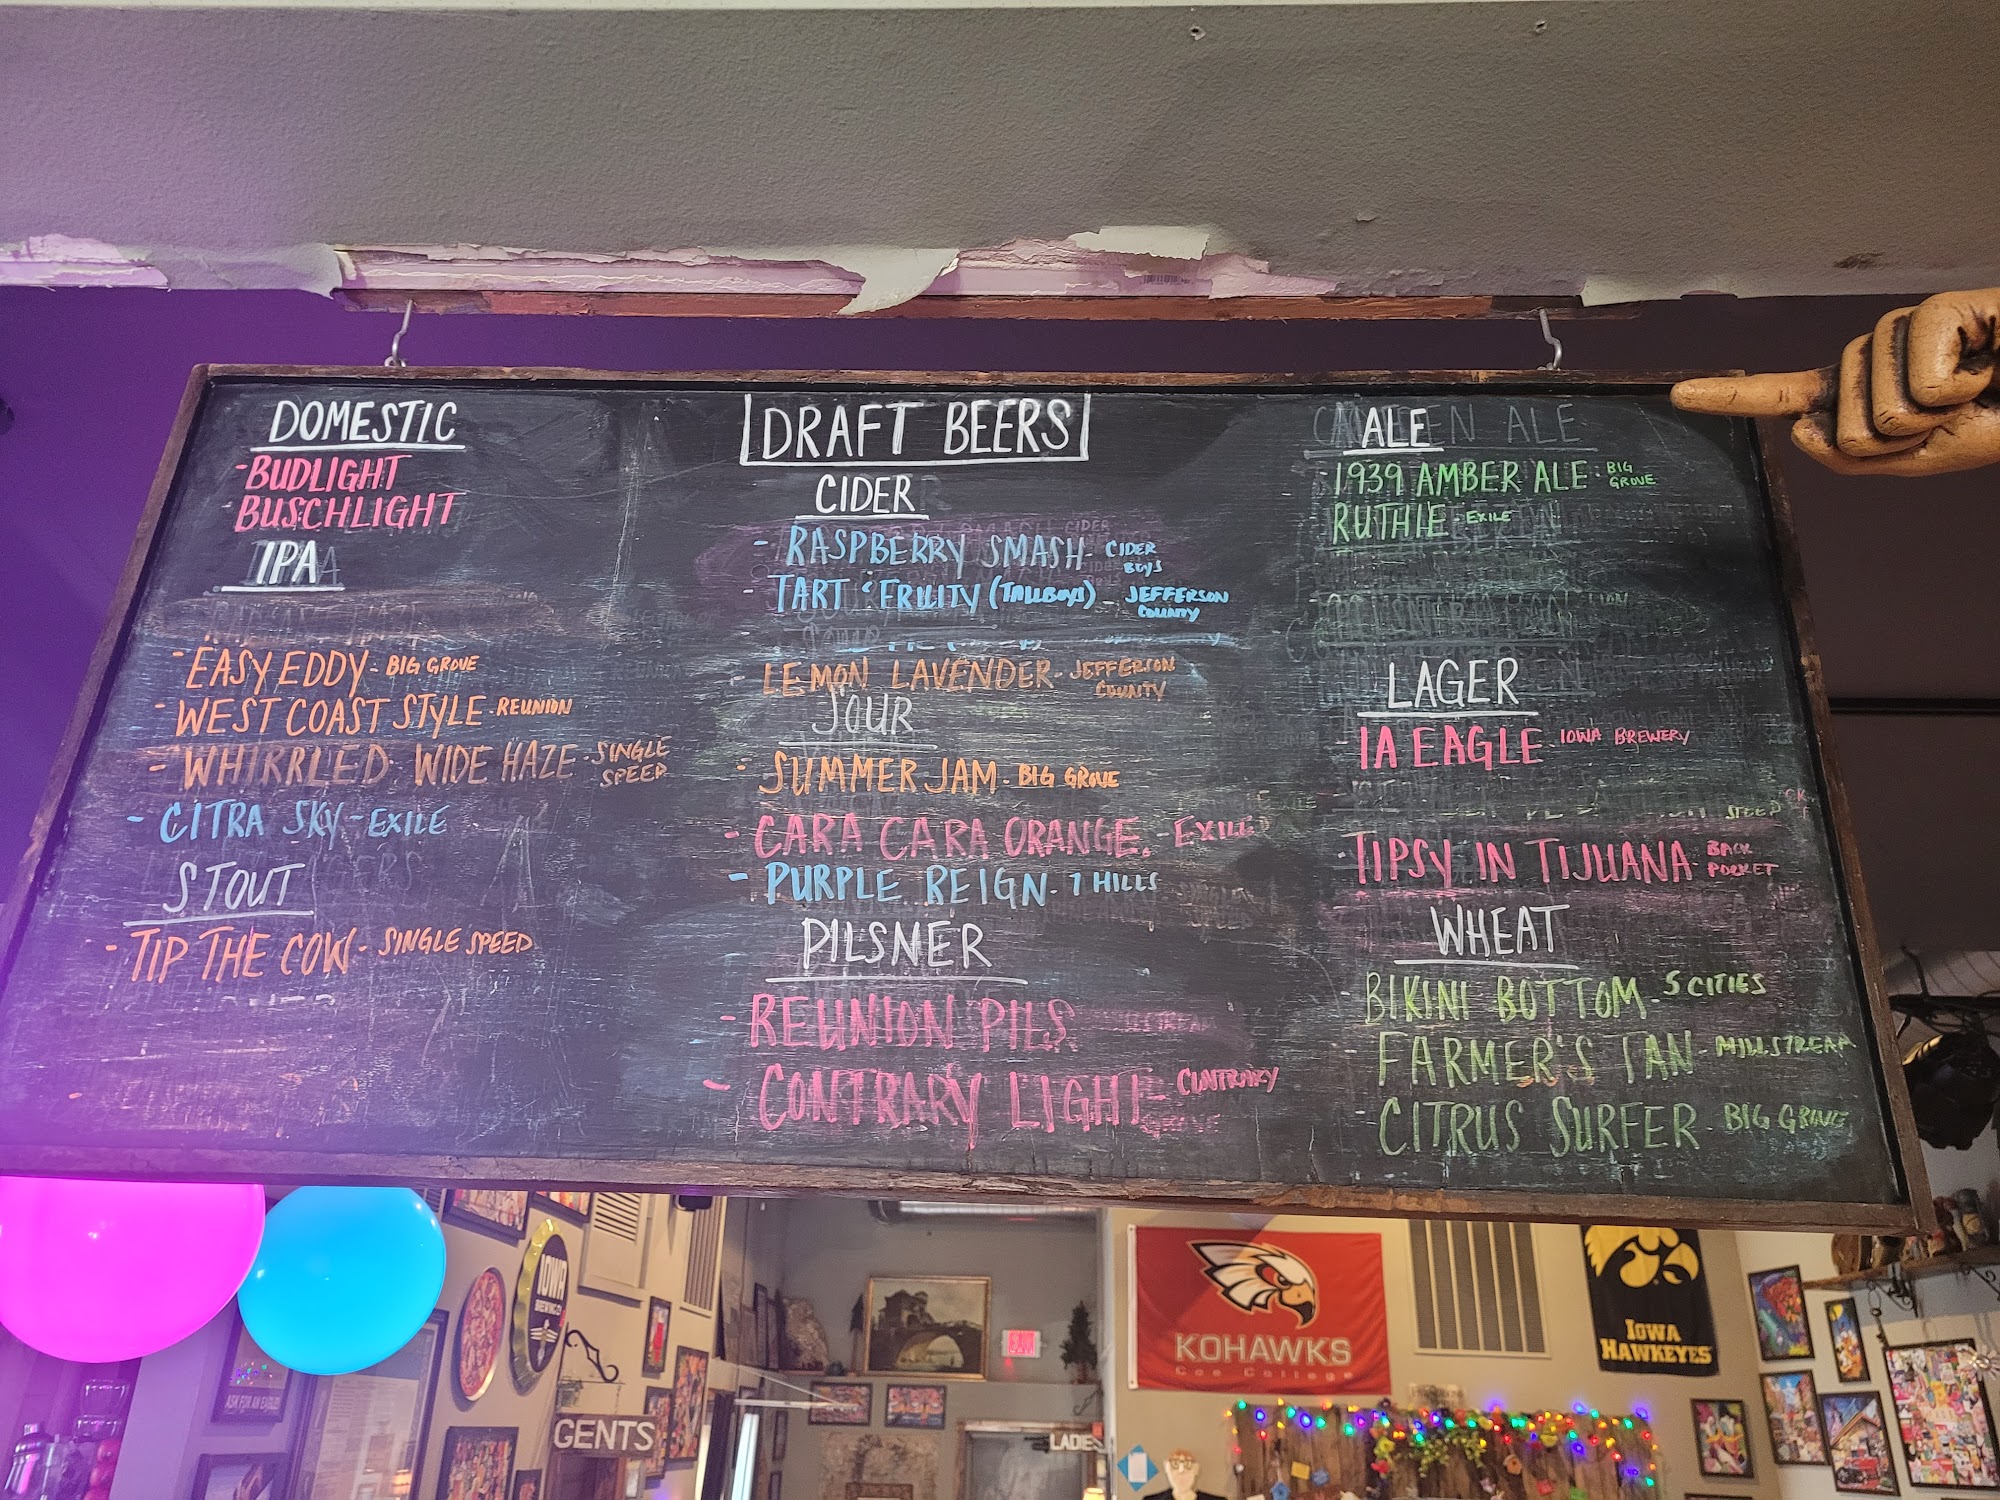 DOMESTIC
-BUDLIGHT
-BUSCHLIGHT
IPA
-EASY EDDY- BIG GROVE
-WEST COAST STYLE-REUNION
-WHIRRLED WIDE HAZE-SINGLE
SPEED
-CITRA SKY-EXILE
STOUT
-TIP THE COW- SINGLE SPEED
DRAFT BEERS
CIDER
-RASPBERRY SMASH- CIDER
BOYS
-TART 'FRUITY (TALLBOYS)- JEFFERSON
COUNTY
LEMON LAVENDER-JEFFERSON
COUNTY
SOUR
-SUMMER JAM- BIG GROVE
-CARA CARA ORANGE.-EXILE
-PURPLE REIGN- 7 HILLS
PILSNER
-REUNION PILS
-CONTRARY LIGHT- CONTRARY
ALE
-1939 AMBER ALE-BIG
GROVE
RUTHIE-EXILE
LAGER
-IA EAGLE-IOWA BREWERY
-TIPSY IN TIJUANA-BACK
POCKET
WHEAT
-BIKINI BOTTOM-5 CITIES
-FARMER'S TAN-MILLSTREAM
-CITRUS SURFER-BIG GROVE
IOWA
BREWING CO
ASK FOR AN EAGLE
GENTS
EXIT
LADIES
KOHAWKS
Coe College
IOWA
HAWKEYES